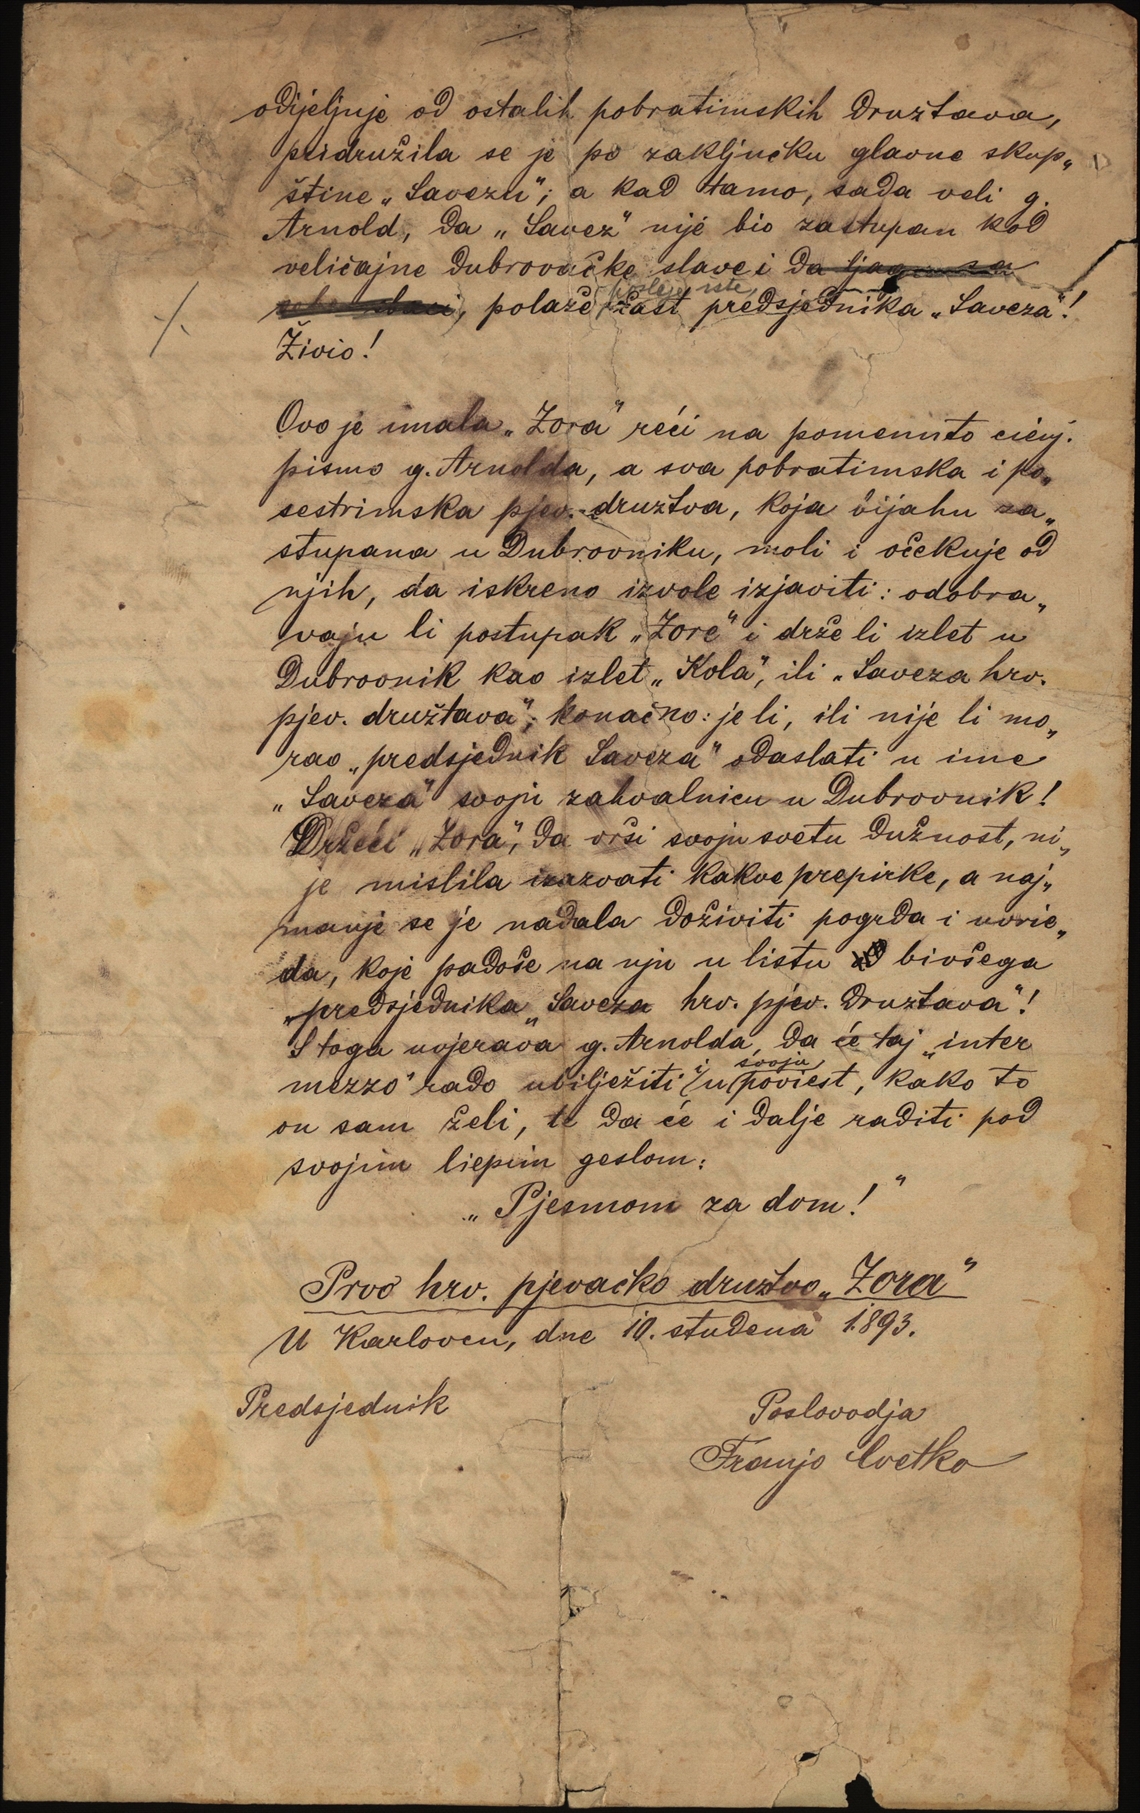 odijeljuje od ostalih pobratimskih družtava,
pridružila se je po zaključku glavne skup„
štine „Savezu“; a kad tamo, sada veli g.
Arnold, da „Savez“ nije bio zastupan kod
veličajne dubrovačke slave i da ljaga sa
polaže poslije iste čast predsjednika „Saveza“!
Živio!
Ovo je imala „Zora“ reći na pomenuto cienj.
pismo g. Arnolda, a sva pobratimska i po„
sestrimska pjev. družtva, koja bijahu za„
stupana u Dubrovniku, moli i očekuje od
njih, da iskreno izvole izjaviti: odobra„
vaju li postupak „Zore“ i drže li izlet u
Dubrovnik kao izlet „Kola“, ili „Saveza hrv.
pjev. družtava“; konačno: je li, ili nije li mo„
rao „predsjednik Saveza“ odaslati u ime
„Saveza“ svoju zahvalnicu u Dubrovnik!
Držeći „Zora“, da vrši svoju svetu dužnost, ni„
je mislila izazvati kakve prepirke, a naj„
manje se je nadala doživiti pogrda i uvrie„
da, koje padoše na nju u listu bivšega
„predsjednika „Saveza hrv. pjev. družtava“!
S toga uvjerava g. Arnolda, da će taj „inter
mezzo“ rado ubilježiti i u svoju poviest, kako to
on sam želi, te da će i dalje raditi pod
svojim liepim geslom:
„Pjesmom za dom!“
Prvo hrv. pjevačko družtvo „Zora“
U Karlovcu, dne 10. studena 1893.
Predsjednik
Poslovodja
Franjo Cvetko